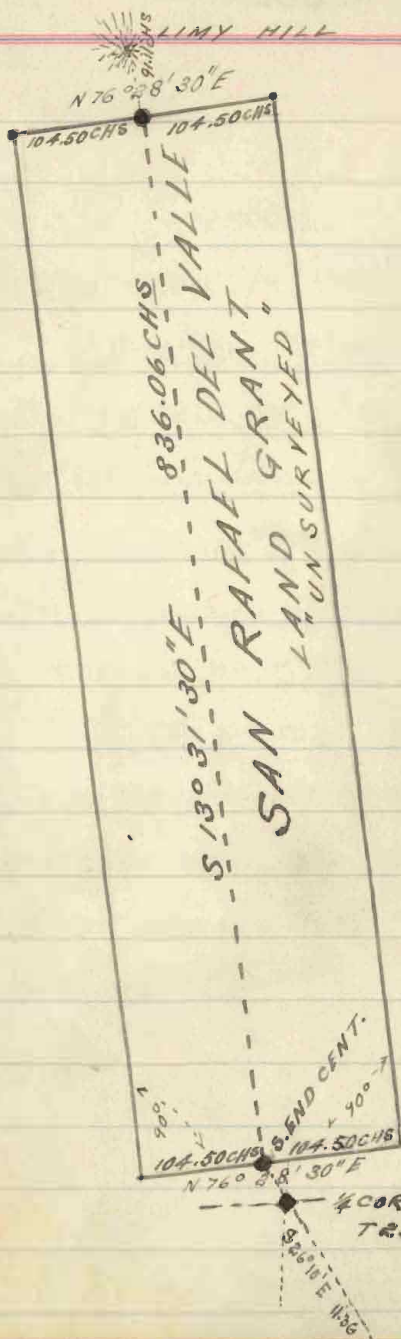 LIMY HILL
91.16 CHS
N 76° 28' 30" E
104.50 CHS
104.50 CHS
836.06 CHS
S 13° 31' 30" E
SAN RAFAEL DEL VALLE
LAND GRANT
"UNSURVEYED"
S. END CENT.
90°
90°
104.50 CHS
104.50 CHS
N 76° 28' 30" E
¼ COR
S 26° 10' E 11.36